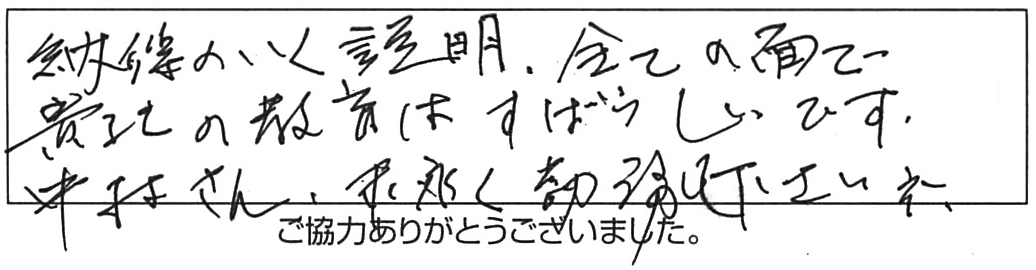 納得のいく説明、全ての面で
貴社の教育はすばらしいです。
中村さん、末永く勤務して下さいネ、
ご協力ありがとうございました。